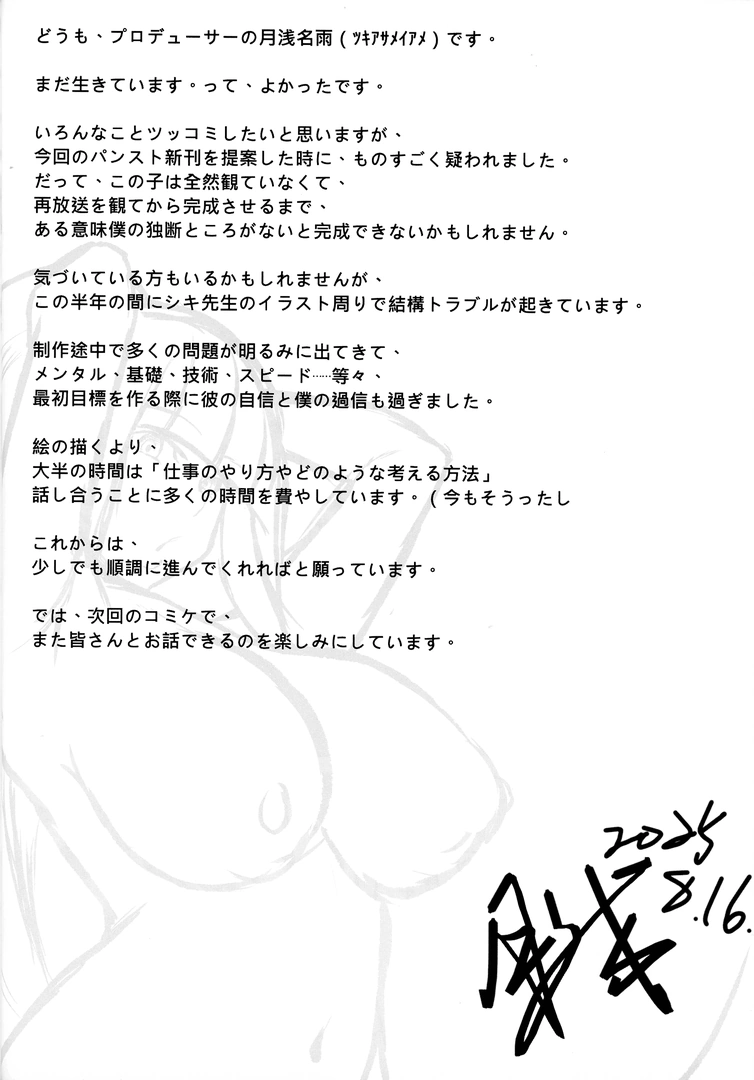 どうも、プロデューサーの月浅名雨(ﾂｷｱｻﾒｲｱﾒ)です。
まだ生きています。って、よかったです。
いろんなことツッコミしたいと思いますが、
今回のパンスト新刊を提案した時に、ものすごく疑われました。
だって、この子は全然観ていなくて、
再放送を観てから完成させるまで、
ある意味僕の独断ところがないと完成できないかもしれません。
気づいている方もいるかもしれませんが、
この半年の間にシキ先生のイラスト周りで結構トラブルが起きています。
制作途中で多くの問題が明るみに出てきて、
メンタル、基礎、技術、スピード……等々、
最初目標を作る際に彼の自信と僕の過信も過ぎました。
絵の描くより、
大半の時間は「仕事のやり方やどのような考える方法」
話し合うことに多くの時間を費やしています。(今もそうったし
これからは、
少しでも順調に進んでくれればと願っています。
では、次回のコミケで、
また皆さんとお話できるのを楽しみにしています。
2025
8.16.